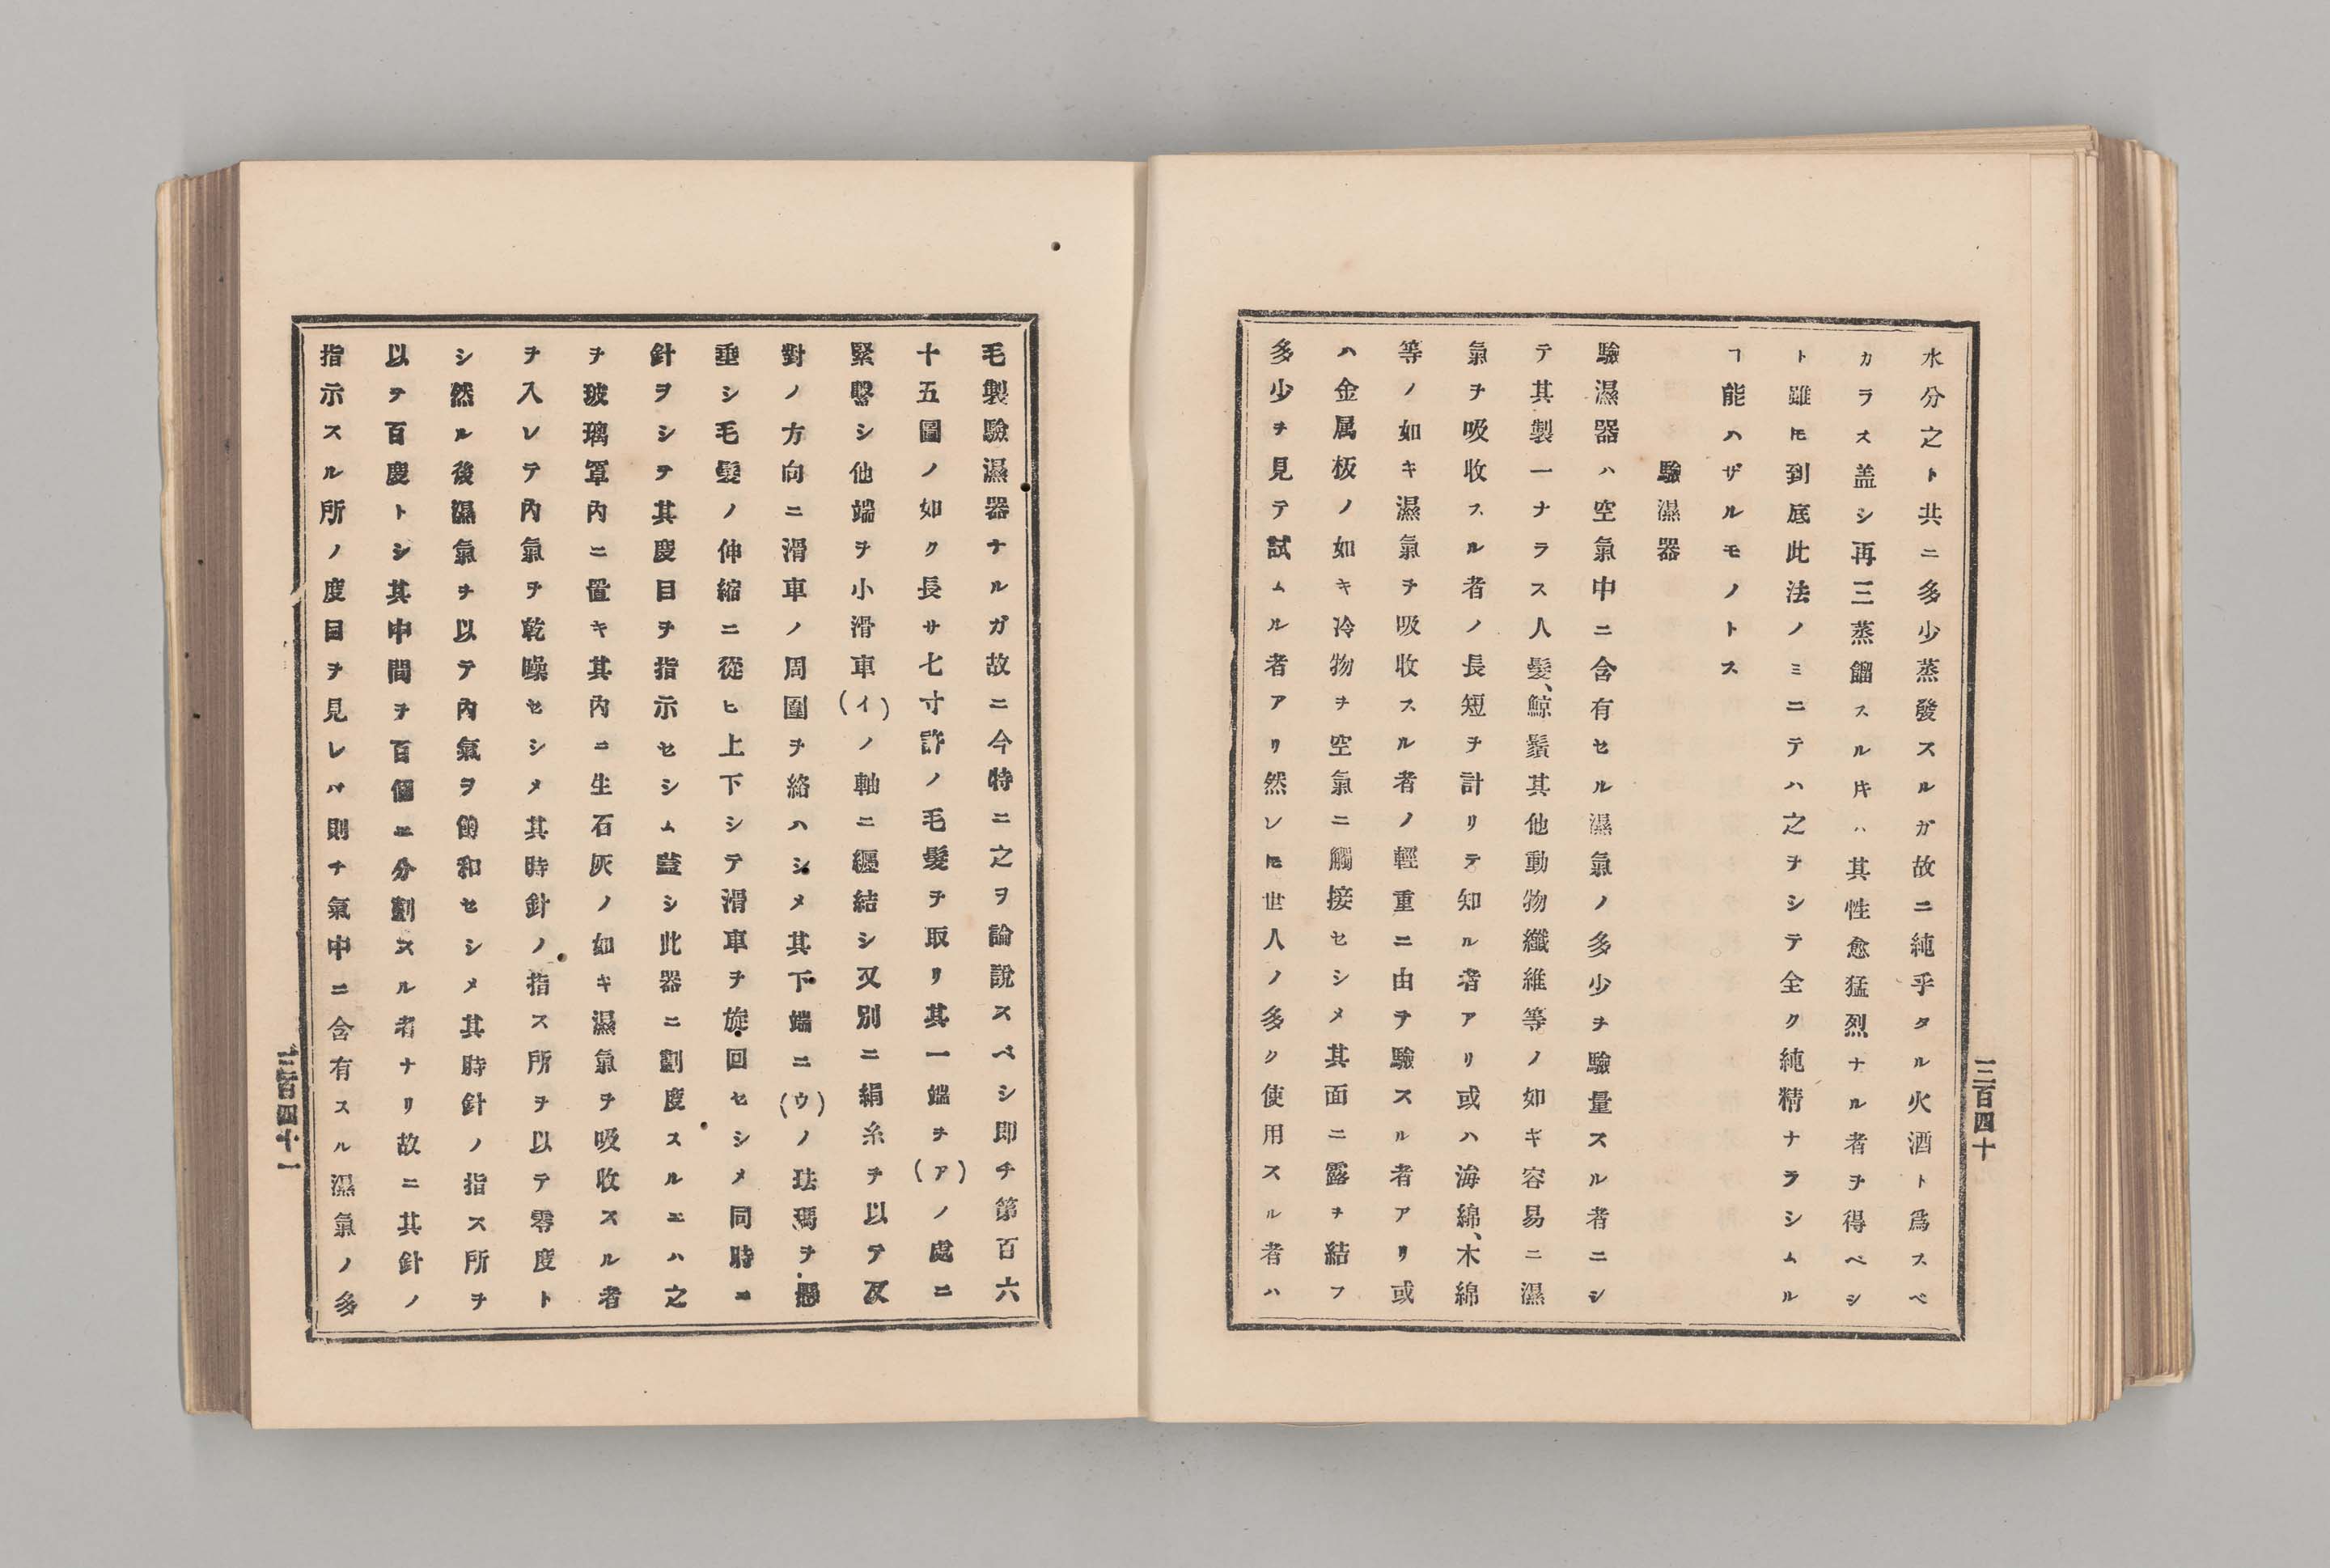 水分之ト共ニ多少蒸發スルガ故ニ純乎タル火酒ト爲スベ
カラス盖シ再三蒸餾スル𪜈ハ其性愈猛烈ナル者ヲ得ベシ
ト雖𪜈到底此法ノミニテハ之ヲシテ全ク純精ナラシムル
ヿ能ハザルモノトス
驗濕器
驗濕器ハ空氣中ニ含有セル濕氣ノ多少ヲ驗量スル者ニシ
テ其製一ナラス人髮、鯨鬚其他動物纖維等ノ如キ容易ニ濕
氣ヲ吸收スル者ノ長短ヲ計リテ知ル者アリ或ハ海綿、木綿
等ノ如キ濕氣ヲ吸收スル者ノ輕重ニ由ヲ驗スル者アリ或
ハ金属板ノ如キ冷物ヲ空氣ニ觸接セシメ其面ニ露ヲ結フ
多少ヲ見テ試ムル者アリ然レ𪜈世人ノ多ク使用スル者ハ
三百四十
毛製驗濕器ナルガ故ニ今特ニ之ヲ論說スベシ即チ第百六
十五圖ノ如ク長サ七寸許ノ毛髮ヲ取リ其一端ヲ(ア)ノ處ニ
緊繫シ他端ヲ小滑車(イ)ノ軸ニ纒結シ又別ニ絹糸ヲ以テ反
對ノ方向ニ滑車ノ周圍ヲ絡ハシメ其下端ニ(ウ)ノ珐瑪ヲ懸
垂シ毛髮ノ伸縮ニ從ヒ上下シテ滑車ヲ旋回セシメ同時ニ
針ヲシテ其度目ヲ指示セシム葢シ此器ニ劃度スルニハ之
ヲ玻璃罩內ニ置キ其內ニ生石灰ノ如キ濕氣ヲ吸收スル者
ヲ入レテ內氣ヲ乾噪セシメ其時針ノ指ス所ヲ以テ零度ト
シ然ル後濕氣ヲ以テ內氣ヲ飽和セシメ其時針ノ指ス所ヲ
以テ百度トシ其中間ヲ百個ニ分劃スル者ナリ故ニ其針ノ
指示スル所ノ度目ヲ見レハ則チ氣中ニ含有スル濕氣ノ多
三百四十一